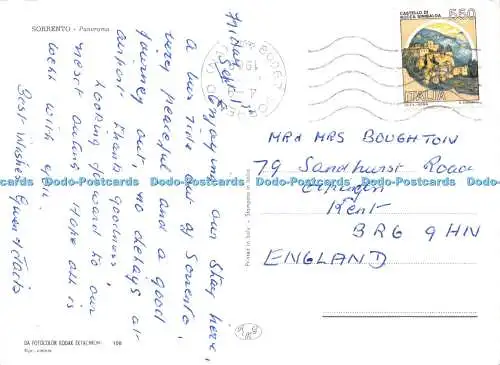 SORRENTO - Panorama
Friday
Sept 1st
Enjoying our stay here,
a bus ride out of Sorrento,
very peaceful and a good
journey out, no delays at
airport thank goodness!
Looking forward to our
next outing. Hope all is
well with you.
Best Wishes
CASTELLO DI
ROCCA SINIBALDA
550
ITALIA
MR & MRS BOUGHTON
79 Sandhurst Road
Orpington
Kent
BR6 9HN
ENGLAND
Printed in Italy - Stampato in Italia
DA FOTOCOLOR KODAK EKTACHROME
198
Dodo-Postcards Dodo-Postcards Dodo-Postcards Dodo-Postcards
Dodo-Postcards Dodo-Postcards Dodo-Postcards